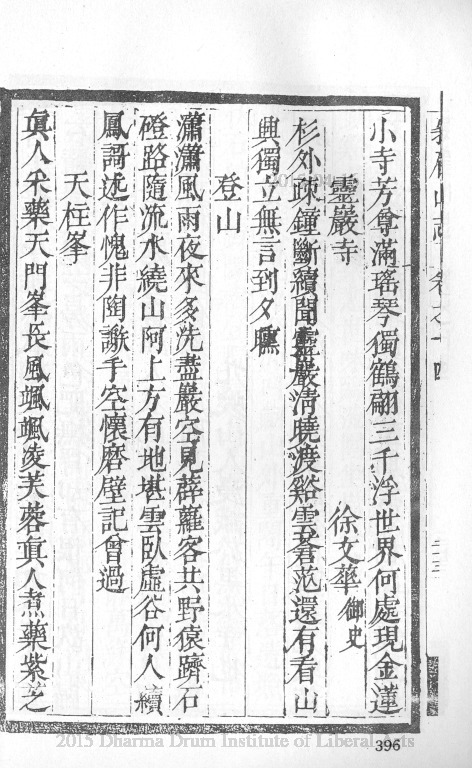 小寺芳尊滿瑤琴獨鶴翩三千浮世界何處現金蓮
靈巖寺
徐文華御史
杉外疎鐘斷續聞靈巖淸曉渡谿雲蒼范還有看山
興獨立無言到夕曛
登山
瀟瀟風雨夜來多洗盡巖空見薜蘿客共野猿躋石
磴路隨流水繞山阿上方有地堪雲臥虛谷何人續
鳳謌述作愧非陶謝手空懷磨壁記曾過
天柱峯
眞人采藥天門峯長風颯颯凌芙蓉眞人煮藥紫芝
卷之十四
二十三
396
2015 Dharma Drum Institute of Liberal Arts